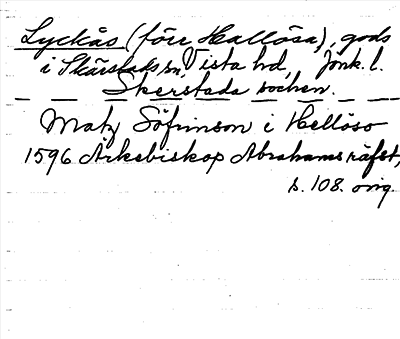 Lyckås (förr Hallösa), gods
i Skärstads sn, Vista hd, Jönk. l.
Skerstada sochen.
Matz Söfrinson i Hellöso
1596 Ärkebiskop Abrahams räfst,
s. 108. orig.